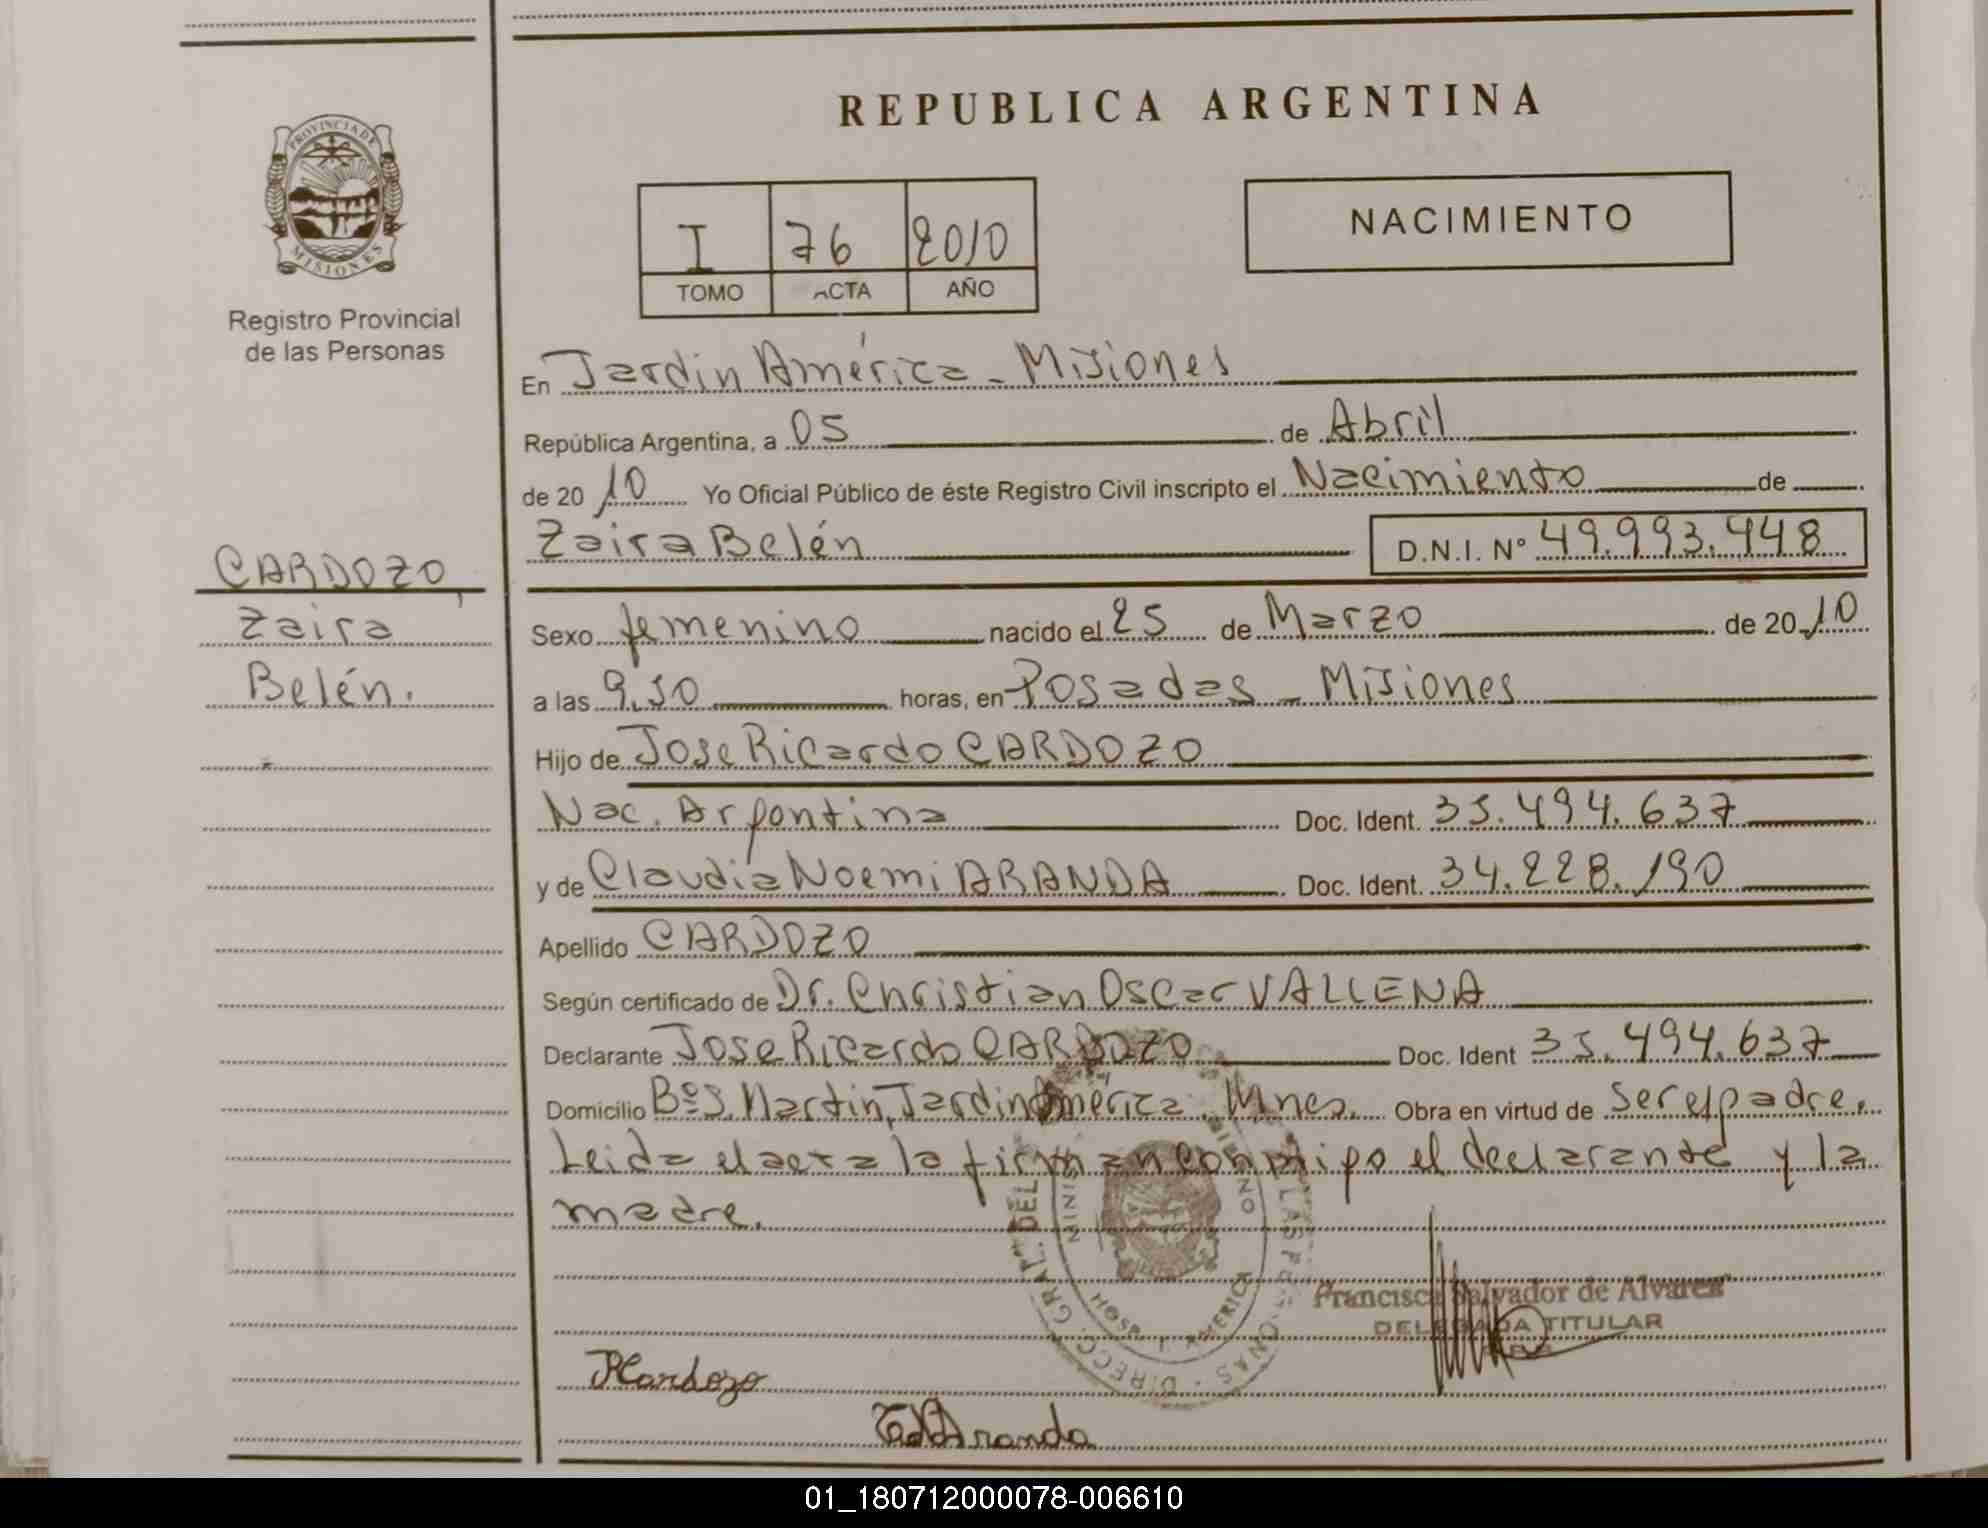 REPUBLICA ARGENTINA
PROVINCIA DE
MISIONES
Registro Provincial
de las Personas
I 76 2010
TOMO ACTA AÑO
NACIMIENTO
En Jardin América - Misiones
República Argentina, a 05 de Abril
de 2010 Yo Oficial Público de éste Registro Civil inscripto el Nacimiento de
Zaira Belén D.N.I. Nº 49.993.448
CARDOZO,
Zaira
Belén.
Sexo femenino nacido el 25 de Marzo de 2010
a las 9.50 horas, en Posadas - Misiones
Hijo de Jose Ricardo CARDOZO
Nac. Argentina Doc. Ident. 35.494.637
y de Claudia Noemi ARANDA Doc. Ident. 34.228.190
Apellido CARDOZO
Según certificado de Dr. Christian Oscar VALLENA
Declarante Jose Ricardo CARDOZO Doc. Ident 35.494.637
Domicilio Bº S. Martin, Jardin América. Mnes. Obra en virtud de ser el padre.
Leida el acta la firman conmigo el declarante y la
madre.
Francisca Salvador de Alvarez
DELEGADA TITULAR
RCardozo
Aranda
01_180712000078-006610